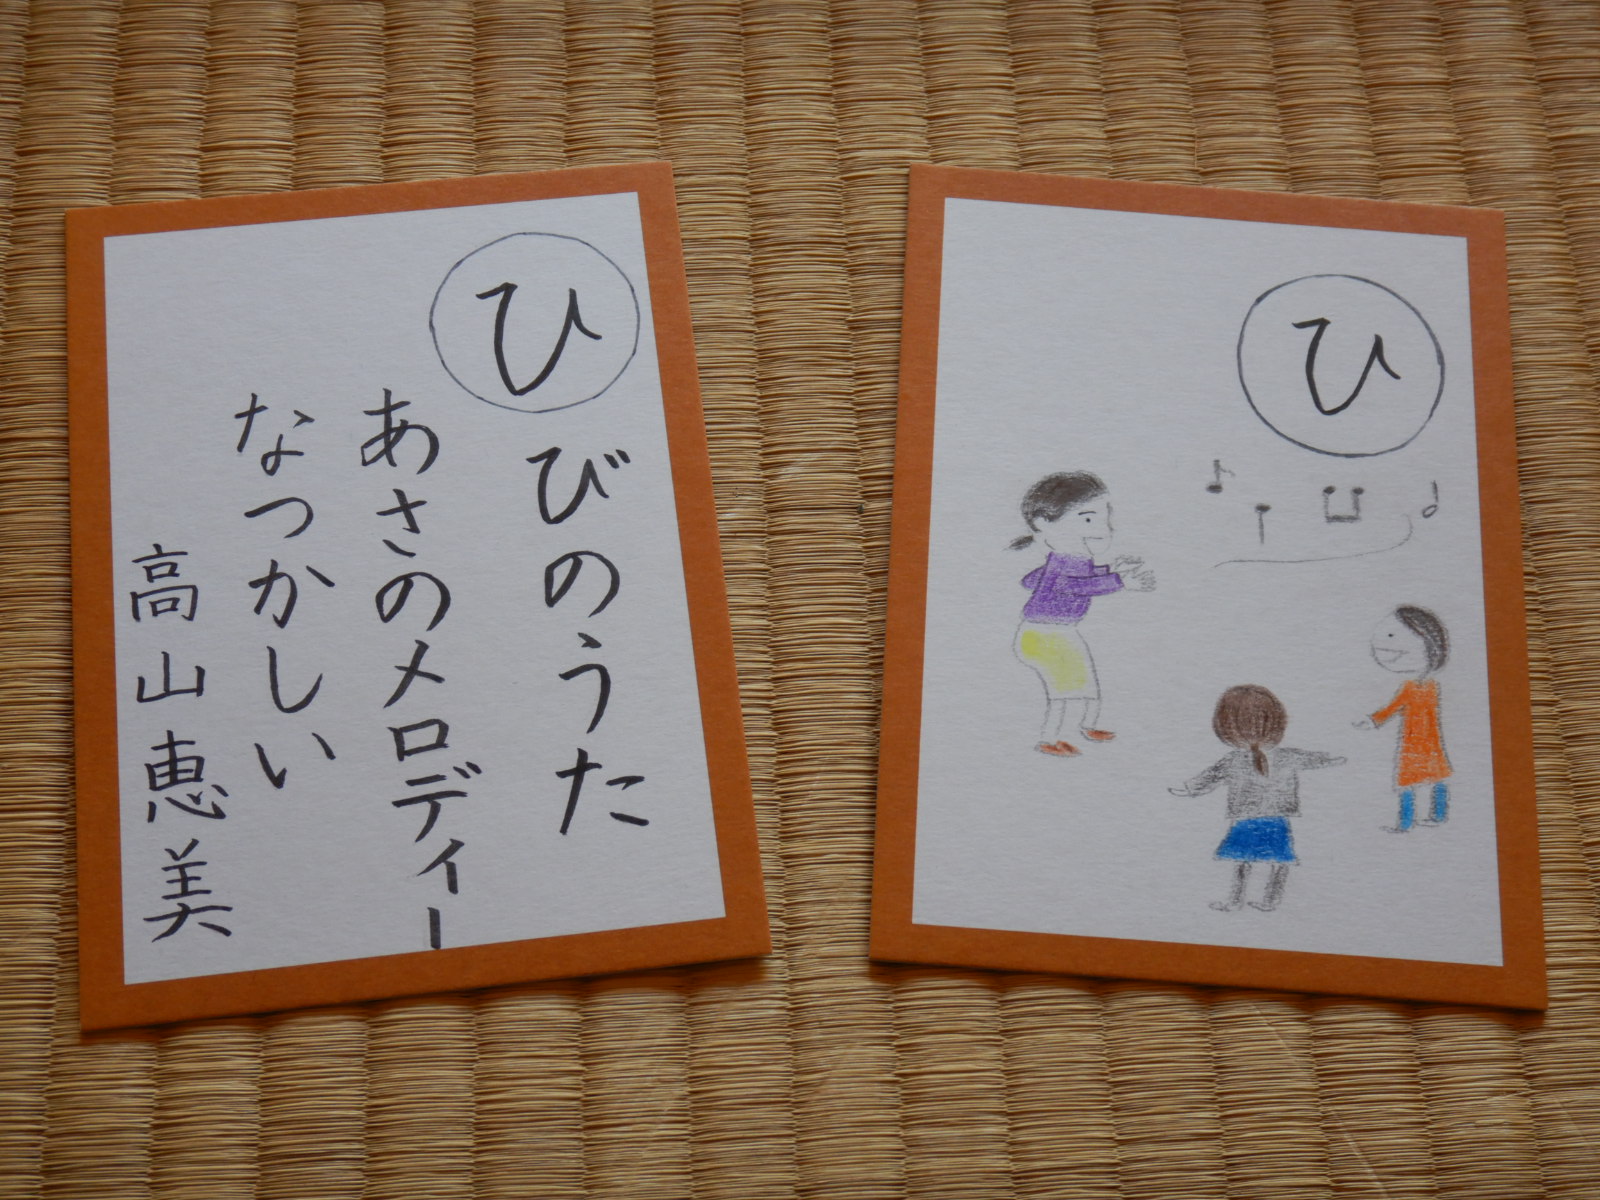 ひ
びのうた
あさのメロディー
なつかしい
高山恵美
ひ